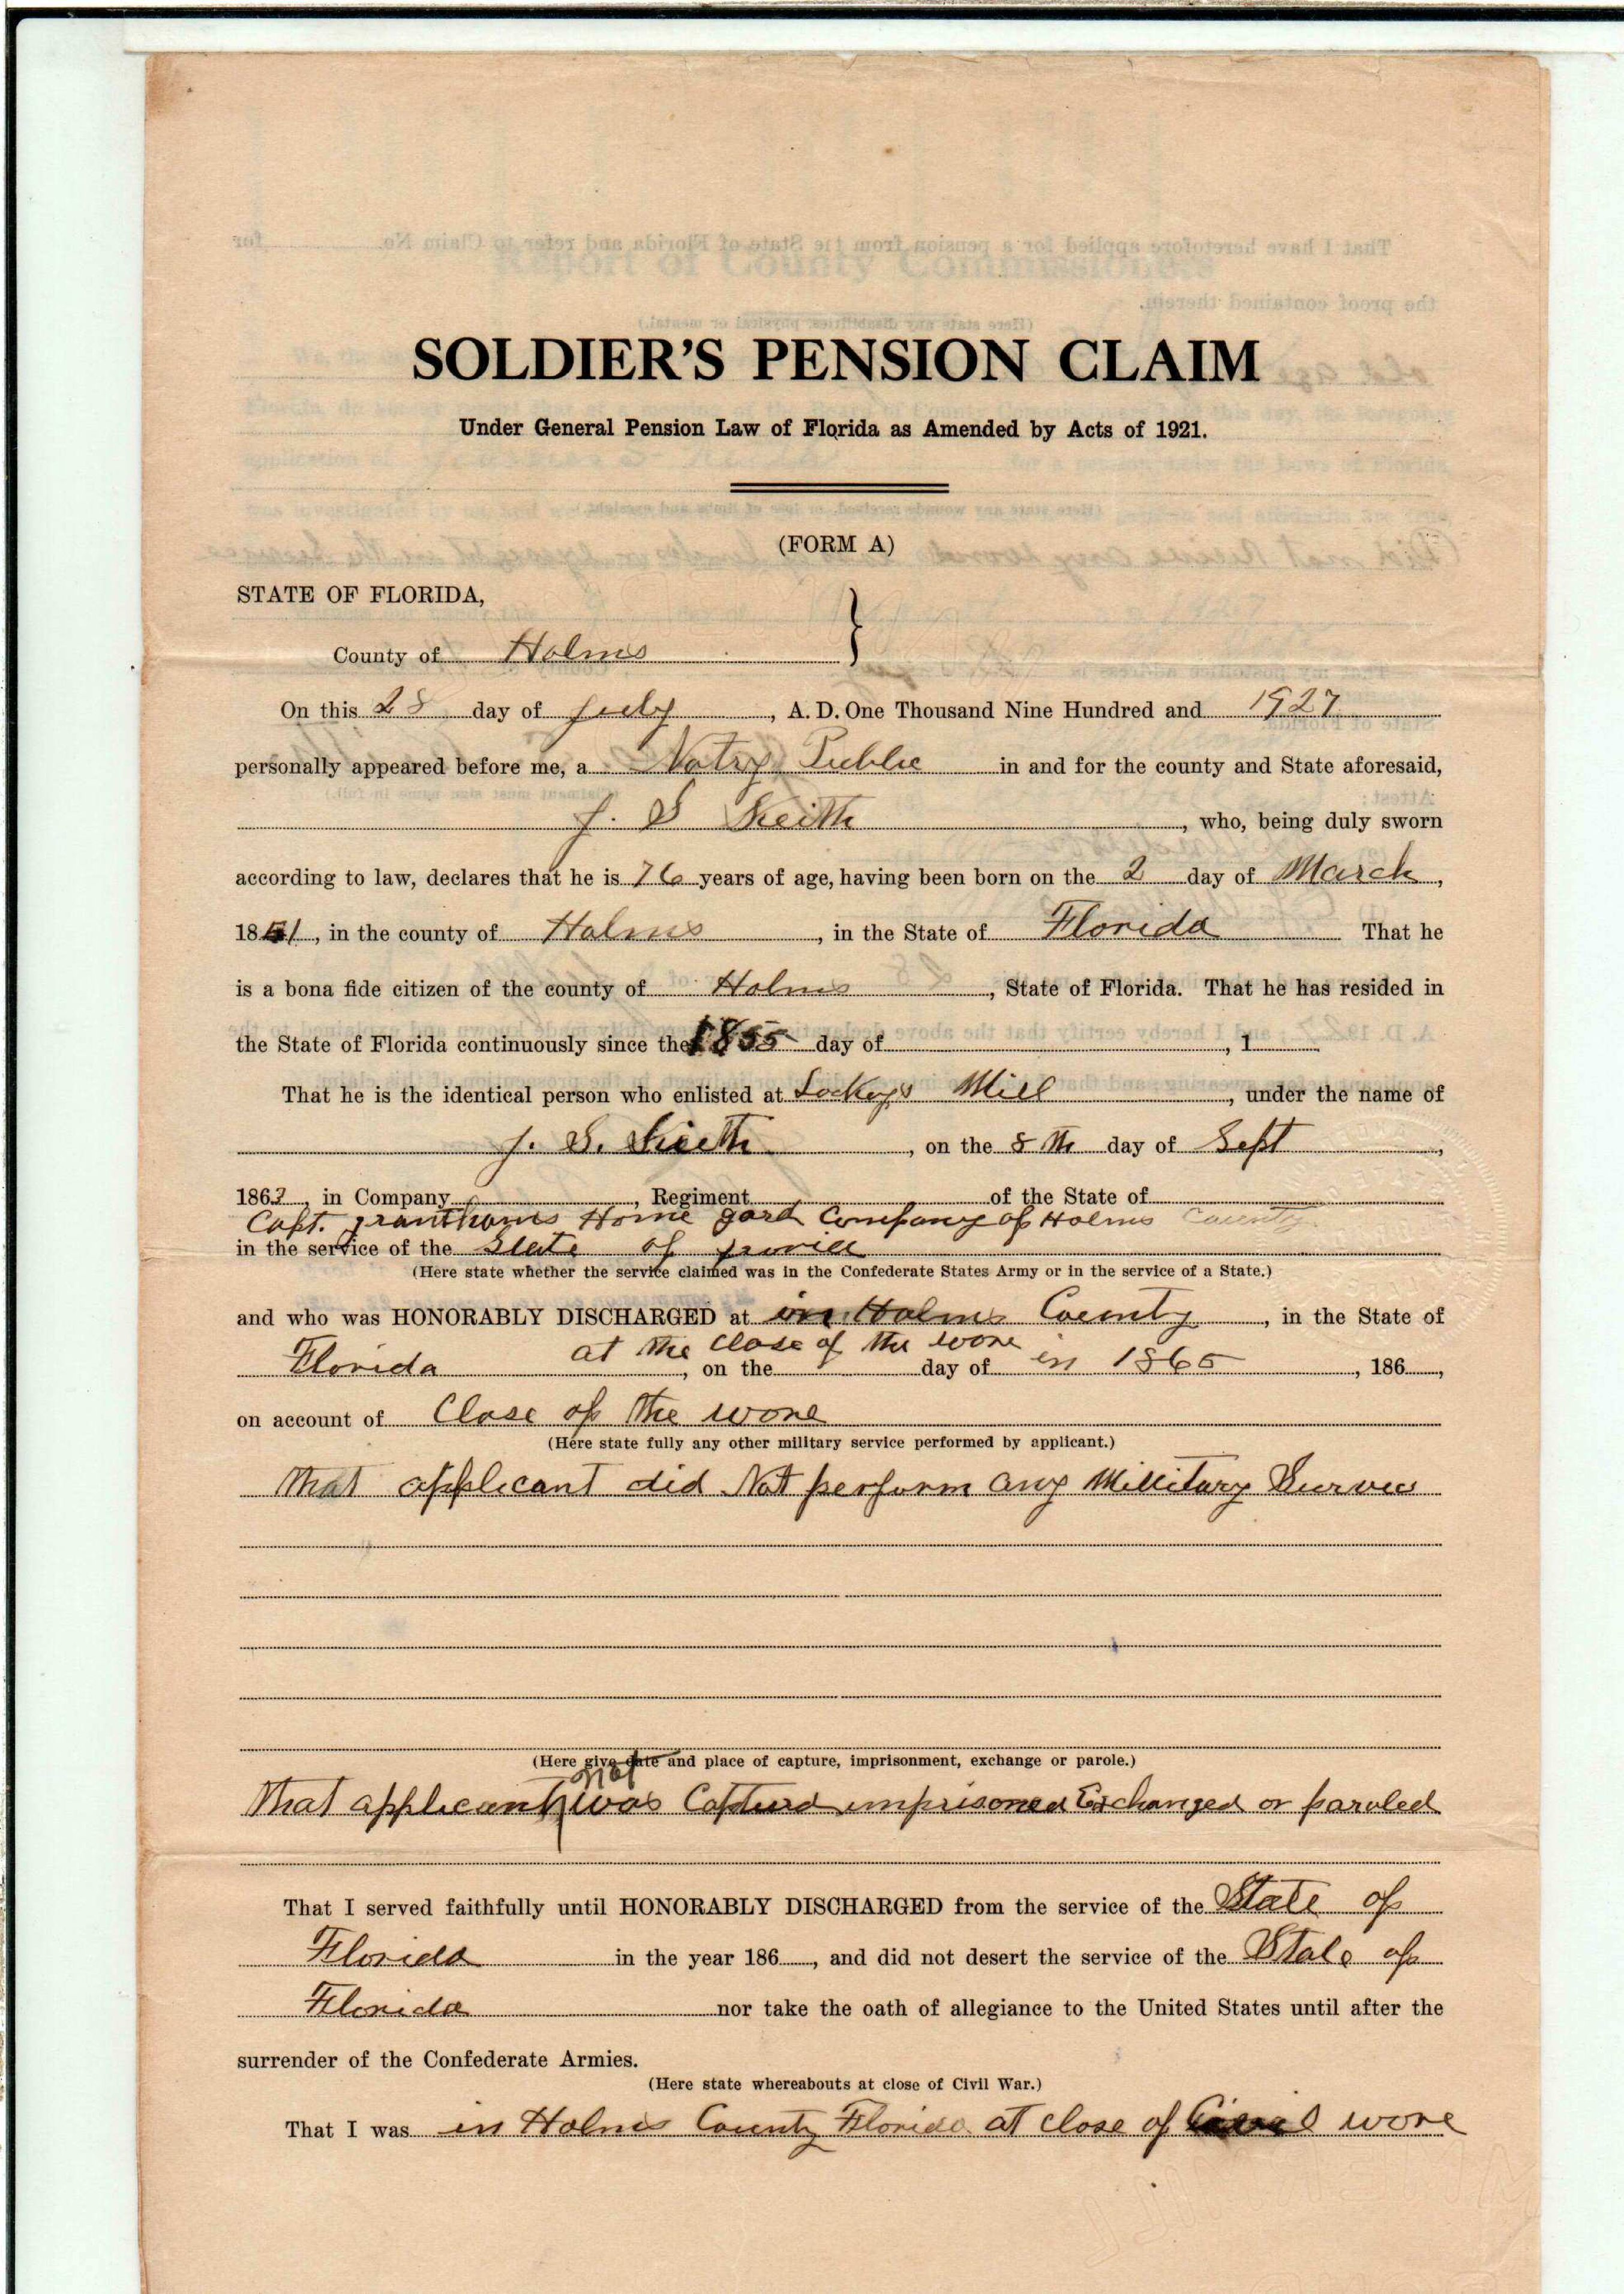 SOLDIER'S PENSION CLAIM
Under General Pension Law of Florida as Amended by Acts of 1921.
(FORM A)
STATE OF FLORIDA,
County of Holms
On this 28 day of July, A. D. One Thousand Nine Hundred and 1927
personally appeared before me, a Notry Public in and for the county and State aforesaid,
J. S Keith, who, being duly sworn
according to law, declares that he is 76 years of age, having been born on the 2 day of March,
1851, in the county of Holms, in the State of Florida That he
is a bona fide citizen of the county of Holms, State of Florida. That he has resided in
the State of Florida continuously since the 1855 day of, 1
That he is the identical person who enlisted at Mill, under the name of
J. S. Keith, on the 8th day of Sept,
1863, in Company, Regiment of the State of
Capt. granthams Home gard Company of Holms County
in the service of the State of
(Here state whether the service claimed was in the Confederate States Army or in the service of a State.)
and who was HONORABLY DISCHARGED at in Holms County, in the State of
at the Close of the wore
Florida, on the day of in 1865, 186,
on account of Close of the wore
(Here state fully any other military service performed by applicant.)
that applicant did Not perform any Millitary Survic
(Here give date and place of capture, imprisonment, exchange or parole.)
not
that applicant was Capturd imprisoned Exchanged or paroled
That I served faithfully until HONORABLY DISCHARGED from the service of the State of
Florida in the year 186, and did not desert the service of the State of
Florida nor take the oath of allegiance to the United States until after the
surrender of the Confederate Armies.
(Here state whereabouts at close of Civil War.)
That I was in Holms County Florida at close of wore